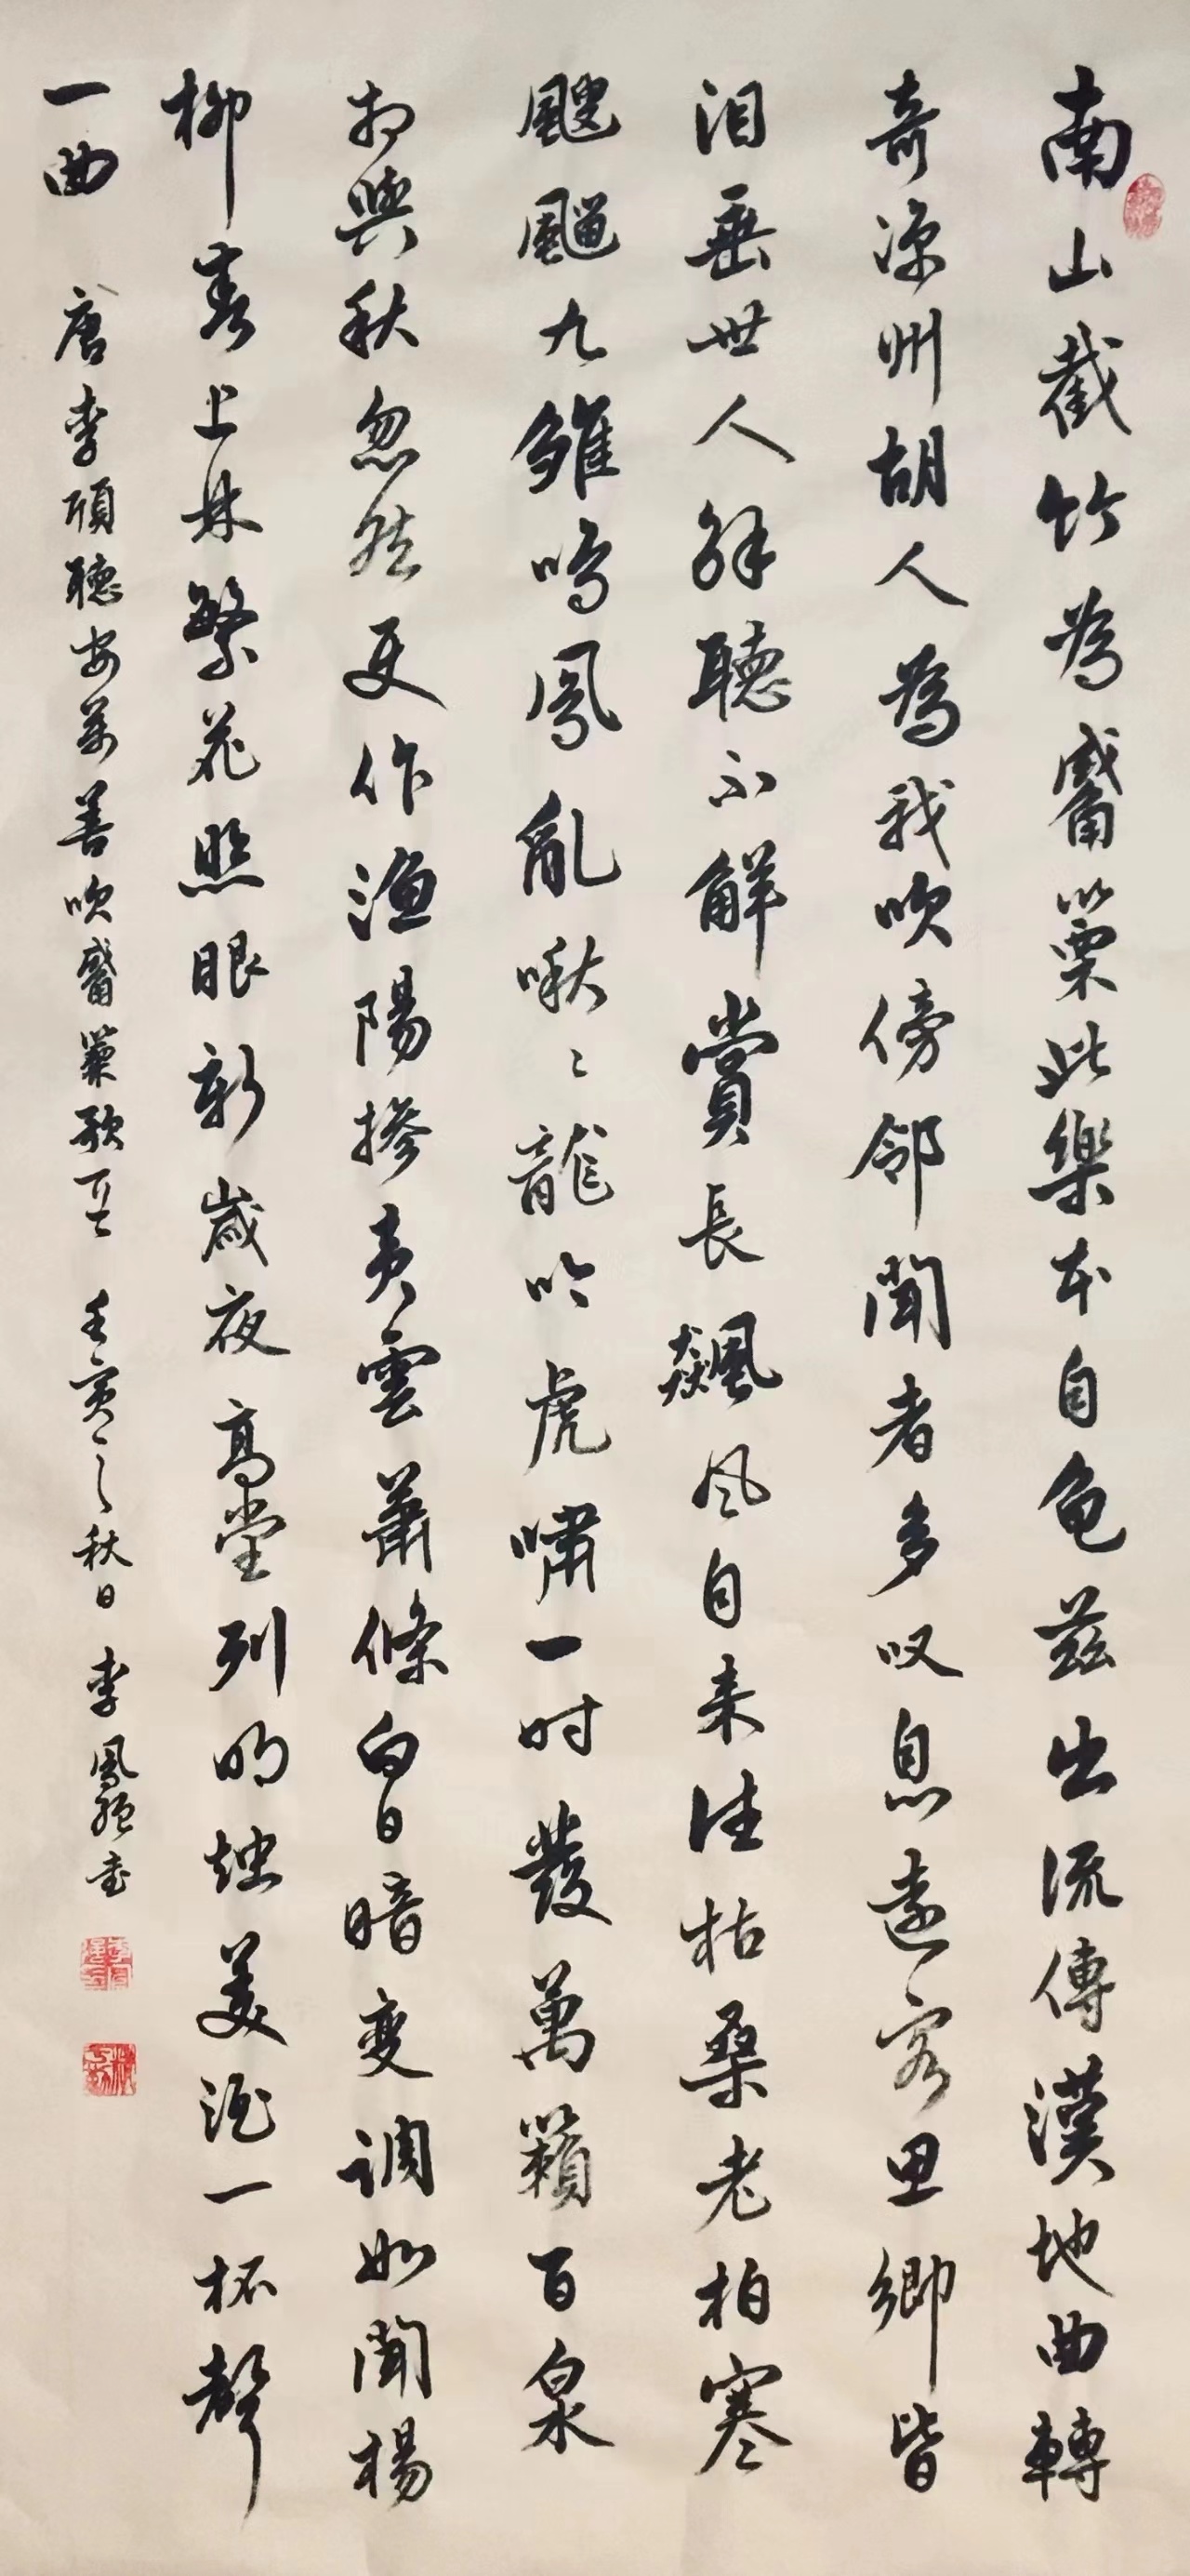 南山截竹為觱篥此樂本自龟茲出流傳漢地曲轉
奇凉州胡人為我吹傍邻聞者多叹息遠客思鄉皆
泪垂世人解聽不解賞長飆风自来往枯桑老柏寒
颼飀九雏鳴鳳亂啾々龍吟虎嘯一时發萬籟百泉
相與秋忽然更作渔陽掺黄雲蕭條白日暗变调如聞楊
柳春上林繁花照眼新歲夜高堂列明烛美酒一杯聲
一曲 唐李頎聽安萬善吹觱篥歌 壬寅之秋日 李鳳